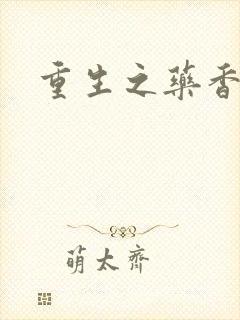 重生之藥香
萌太齊